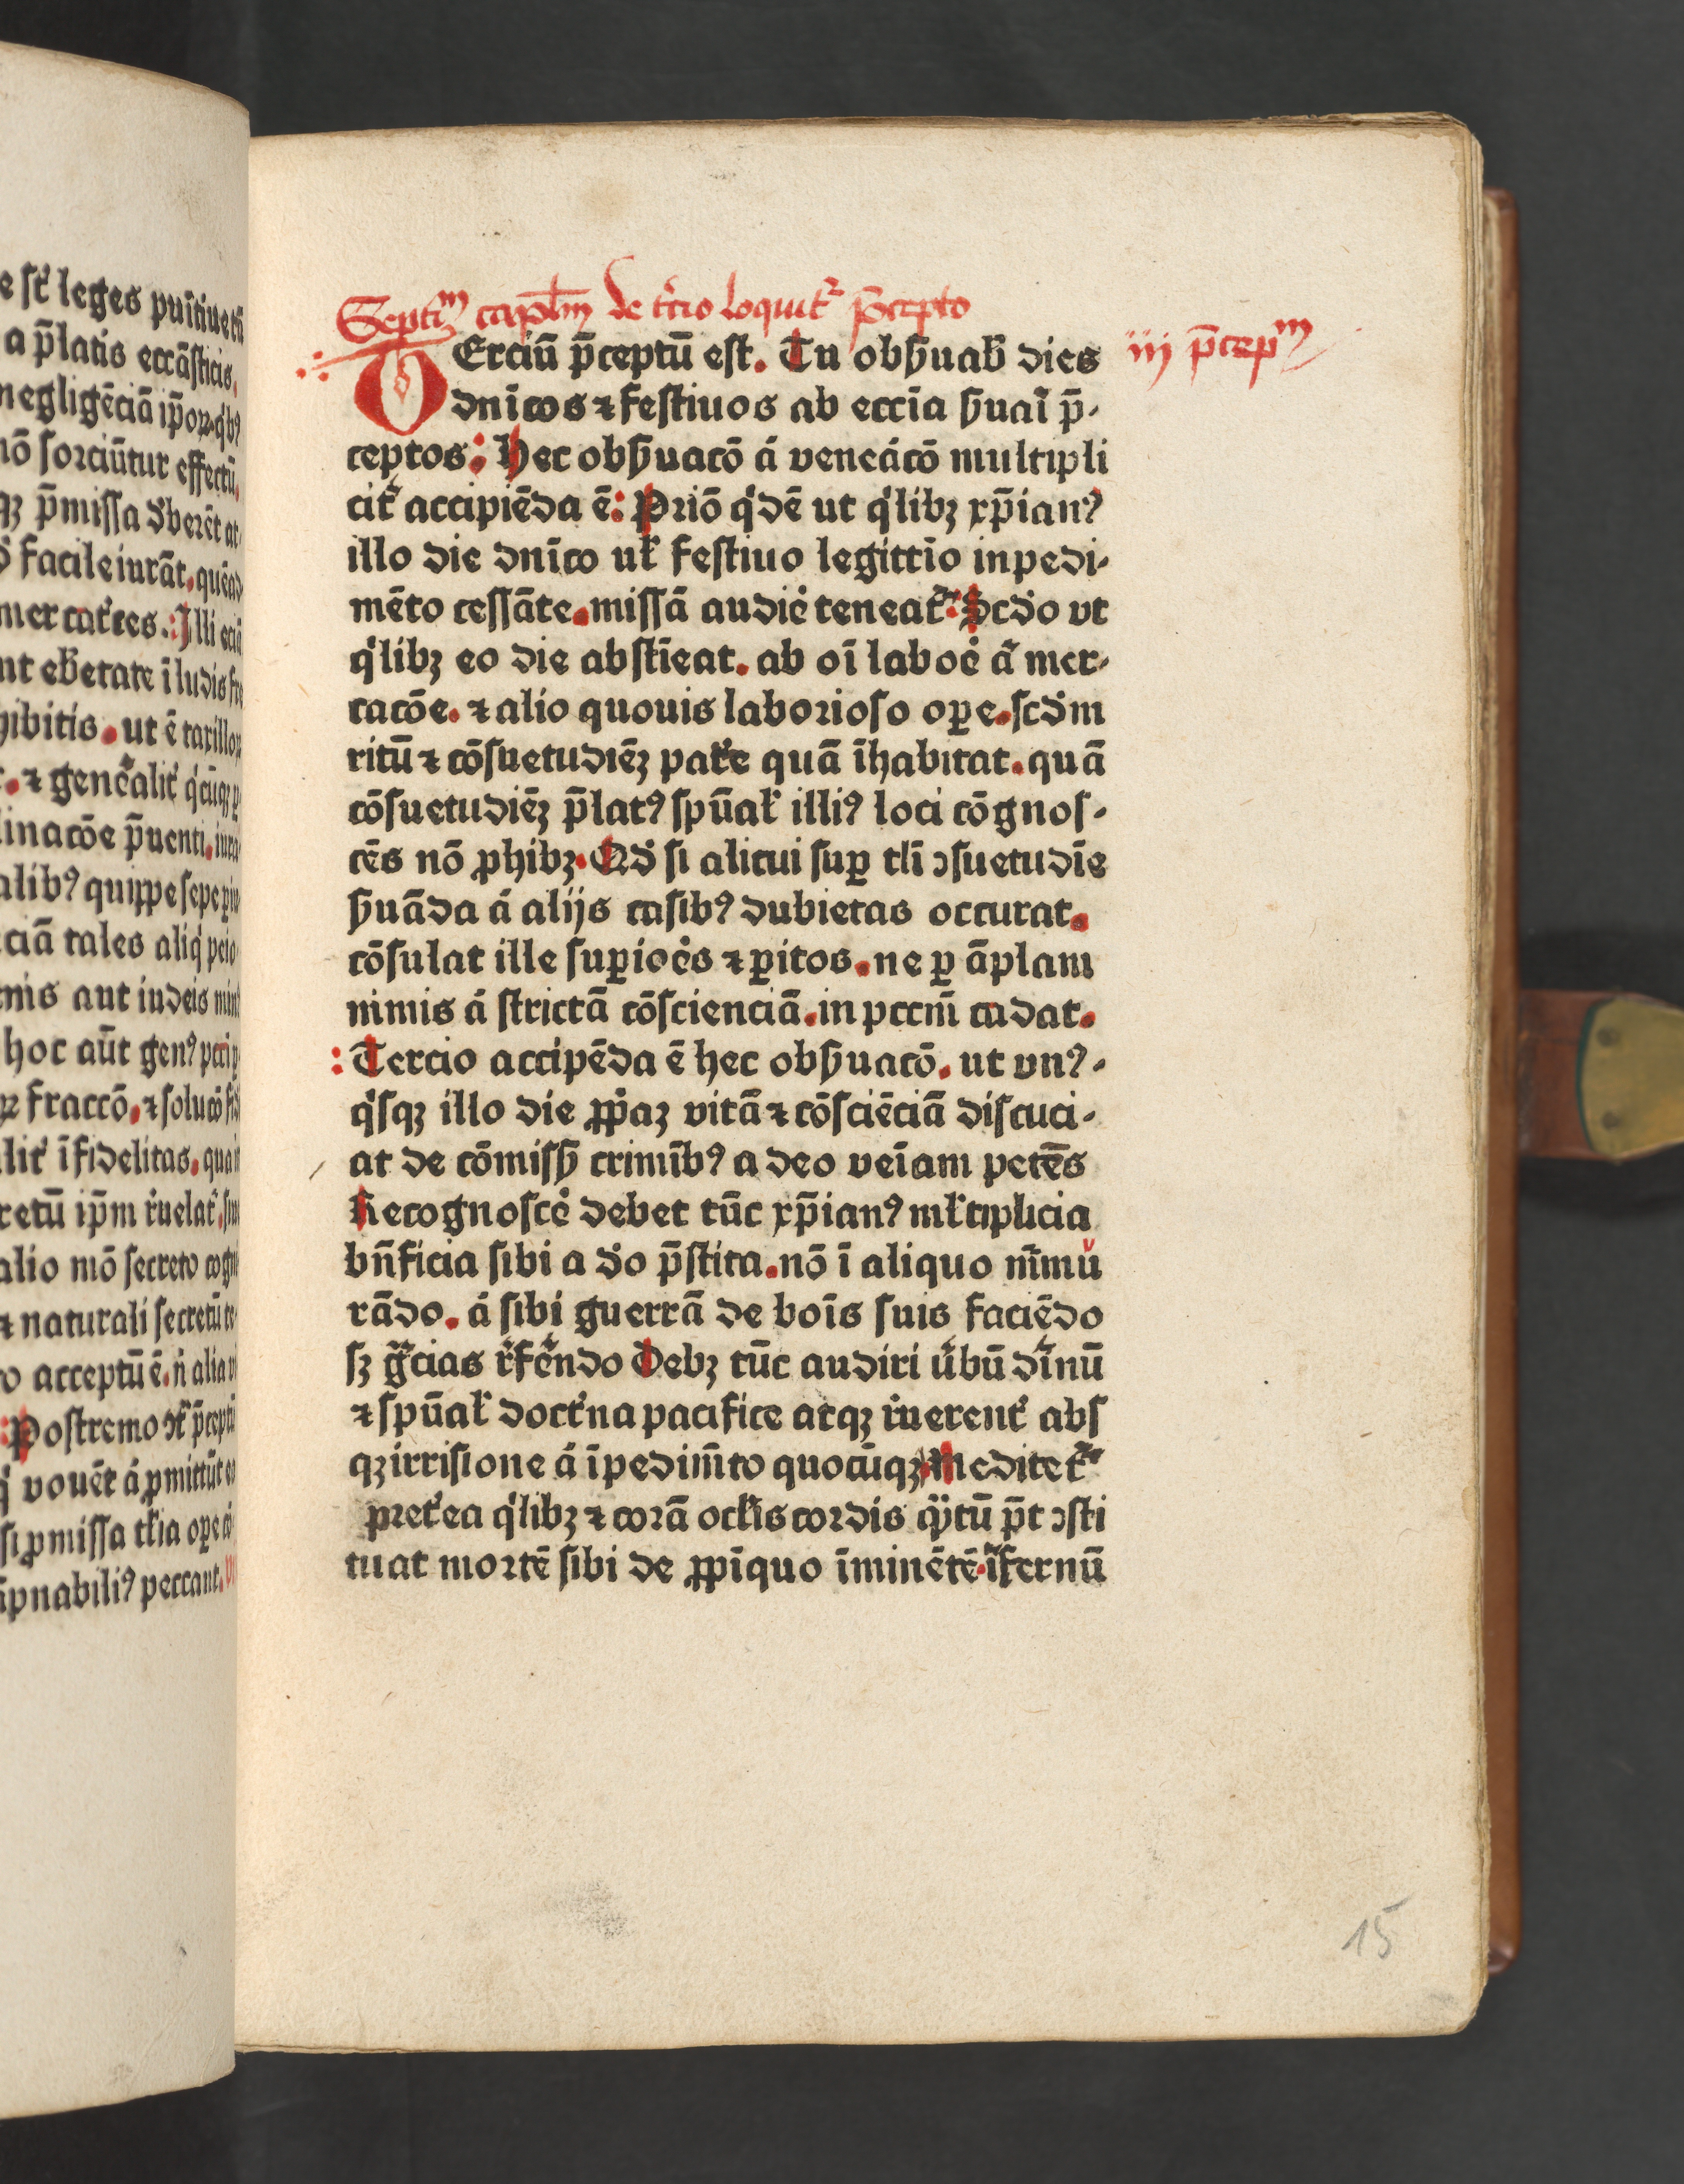 e st̄ leges puītiue
a p̄latis eccāsticis.
negligēciā ip̄oꝝ q'bꝰ
nō sorciūtur effectū.
qꝫ p̄missa
facile iurāt. quēad
mercat'ces. Illi eciā
ibitis. ut ē taxilloꝝ
⁊ gen̄alit' q'cūqꝫ
inacōe p̄uenti. iura
alibꝰ quippe sepe
ciā tales aliq'
nis aut iudeis
hoc aūt genꝰ
fraccō. ⁊ solucō
lit' īfidelitas. quam
cretū ip̄m r'uelat'.
alio mō secreto cogni
⁊ naturali secretū
o acceptū ē. n̄ alia
Postremo p̄ceptū
vouēt á ꝓmittūt
si ꝓmissa tl'ia oꝑe
pnabiliꝰ peccant.
Septimᵐ capl̄m de t'cio loquit' p̄cepto
TErciū p̄ceptū est. Tu obẜuab' dies
iij p̄cepᵐ
dnīcos ⁊ festiuos ab eccīa ẜuaī p̄-
ceptos: Hec obẜuacō á veneácō multipli
cit' accipiēda ē: Priō q'dē ut q'libꝫ xp̄ianꝰ
illo die dnīco ul' festiuo legittīo inpedi-
mēto cessāte. missā audiē teneat': Scd'o vt
q'libꝫ eo die abstīeat. ab oī laboē á mer-
cacōe. ⁊ alio quouis laborioso oꝑe. scd'm
ritū ⁊ cōsuetudiēꝫ pat'e quā īhabitat. quā
cōsuetudiēꝫ p̄latꝰ spūal' illiꝰ loci cōgnos-
cēs nō ꝓhibꝫ. Qd' si alicui suꝑ tlī ɔsuetudīe
ẜuāda á alijs casibꝰ dubietas occurat.
cōsulat ille suꝑioēs ⁊ ꝑitos. ne ꝑ āplam
nimis á strictā cōscienciā. in pccm̄ cadat.
: Tercio accipēda ē hec obẜuacō. ut vnꝰ-
q'sqꝫ illo die ꝓp̄aꝫ vitā ⁊ cōsciēciā discuci-
at de cōmisẜ crimībꝰ a deo veīam petēs
Recognoscē debet tūc xp̄ianꝰ ml'tiplicia
bn̄ficia sibi a d'o p̄stita. nō ī aliquo m̄mu
rādo. á sibi guerrā de boīs suis faciēdo
sꝫ g̃cias r'fēndo Debꝫ tūc audiri u'bū dīnū
⁊ spūal' doct'na pacifice atqꝫ r'uerent' abs
qꝫ irrisione á īpedim̄to quocūqꝫ Meditet'
pret'ea q'libꝫ ⁊ corā ocl'is cordis q̄tū p̄t ɔsti
tuat mortē sibi de ꝓpīquo īminētē. īfernū
15